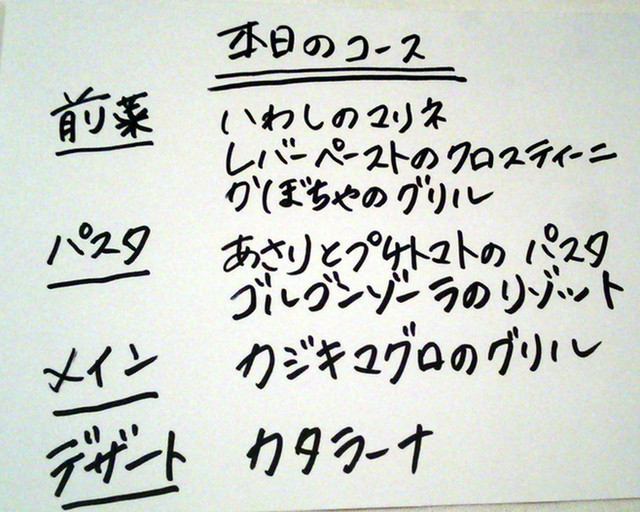 本日のコース
前菜 いわしのマリネ
レバーペーストのクロスティーニ
かぼちゃのグリル
パスタ あさりとプチトマトの パスタ
ゴルゴンゾーラのリゾット
メイン カジキマグロのグリル
デザート カタラーナ